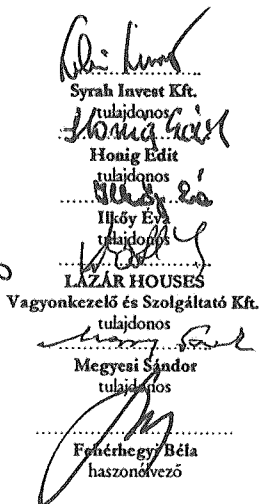 Syrah Invest Kft.
tulajdonos
Honig Edit
tulajdonos
Ilkőy Éva
tulajdonos
LÁZÁR HOUSES
Vagyonkezelő és Szolgáltató Kft.
tulajdonos
Megyesi Sándor
tulajdonos
Fehérhegyi Béla
haszonélvező